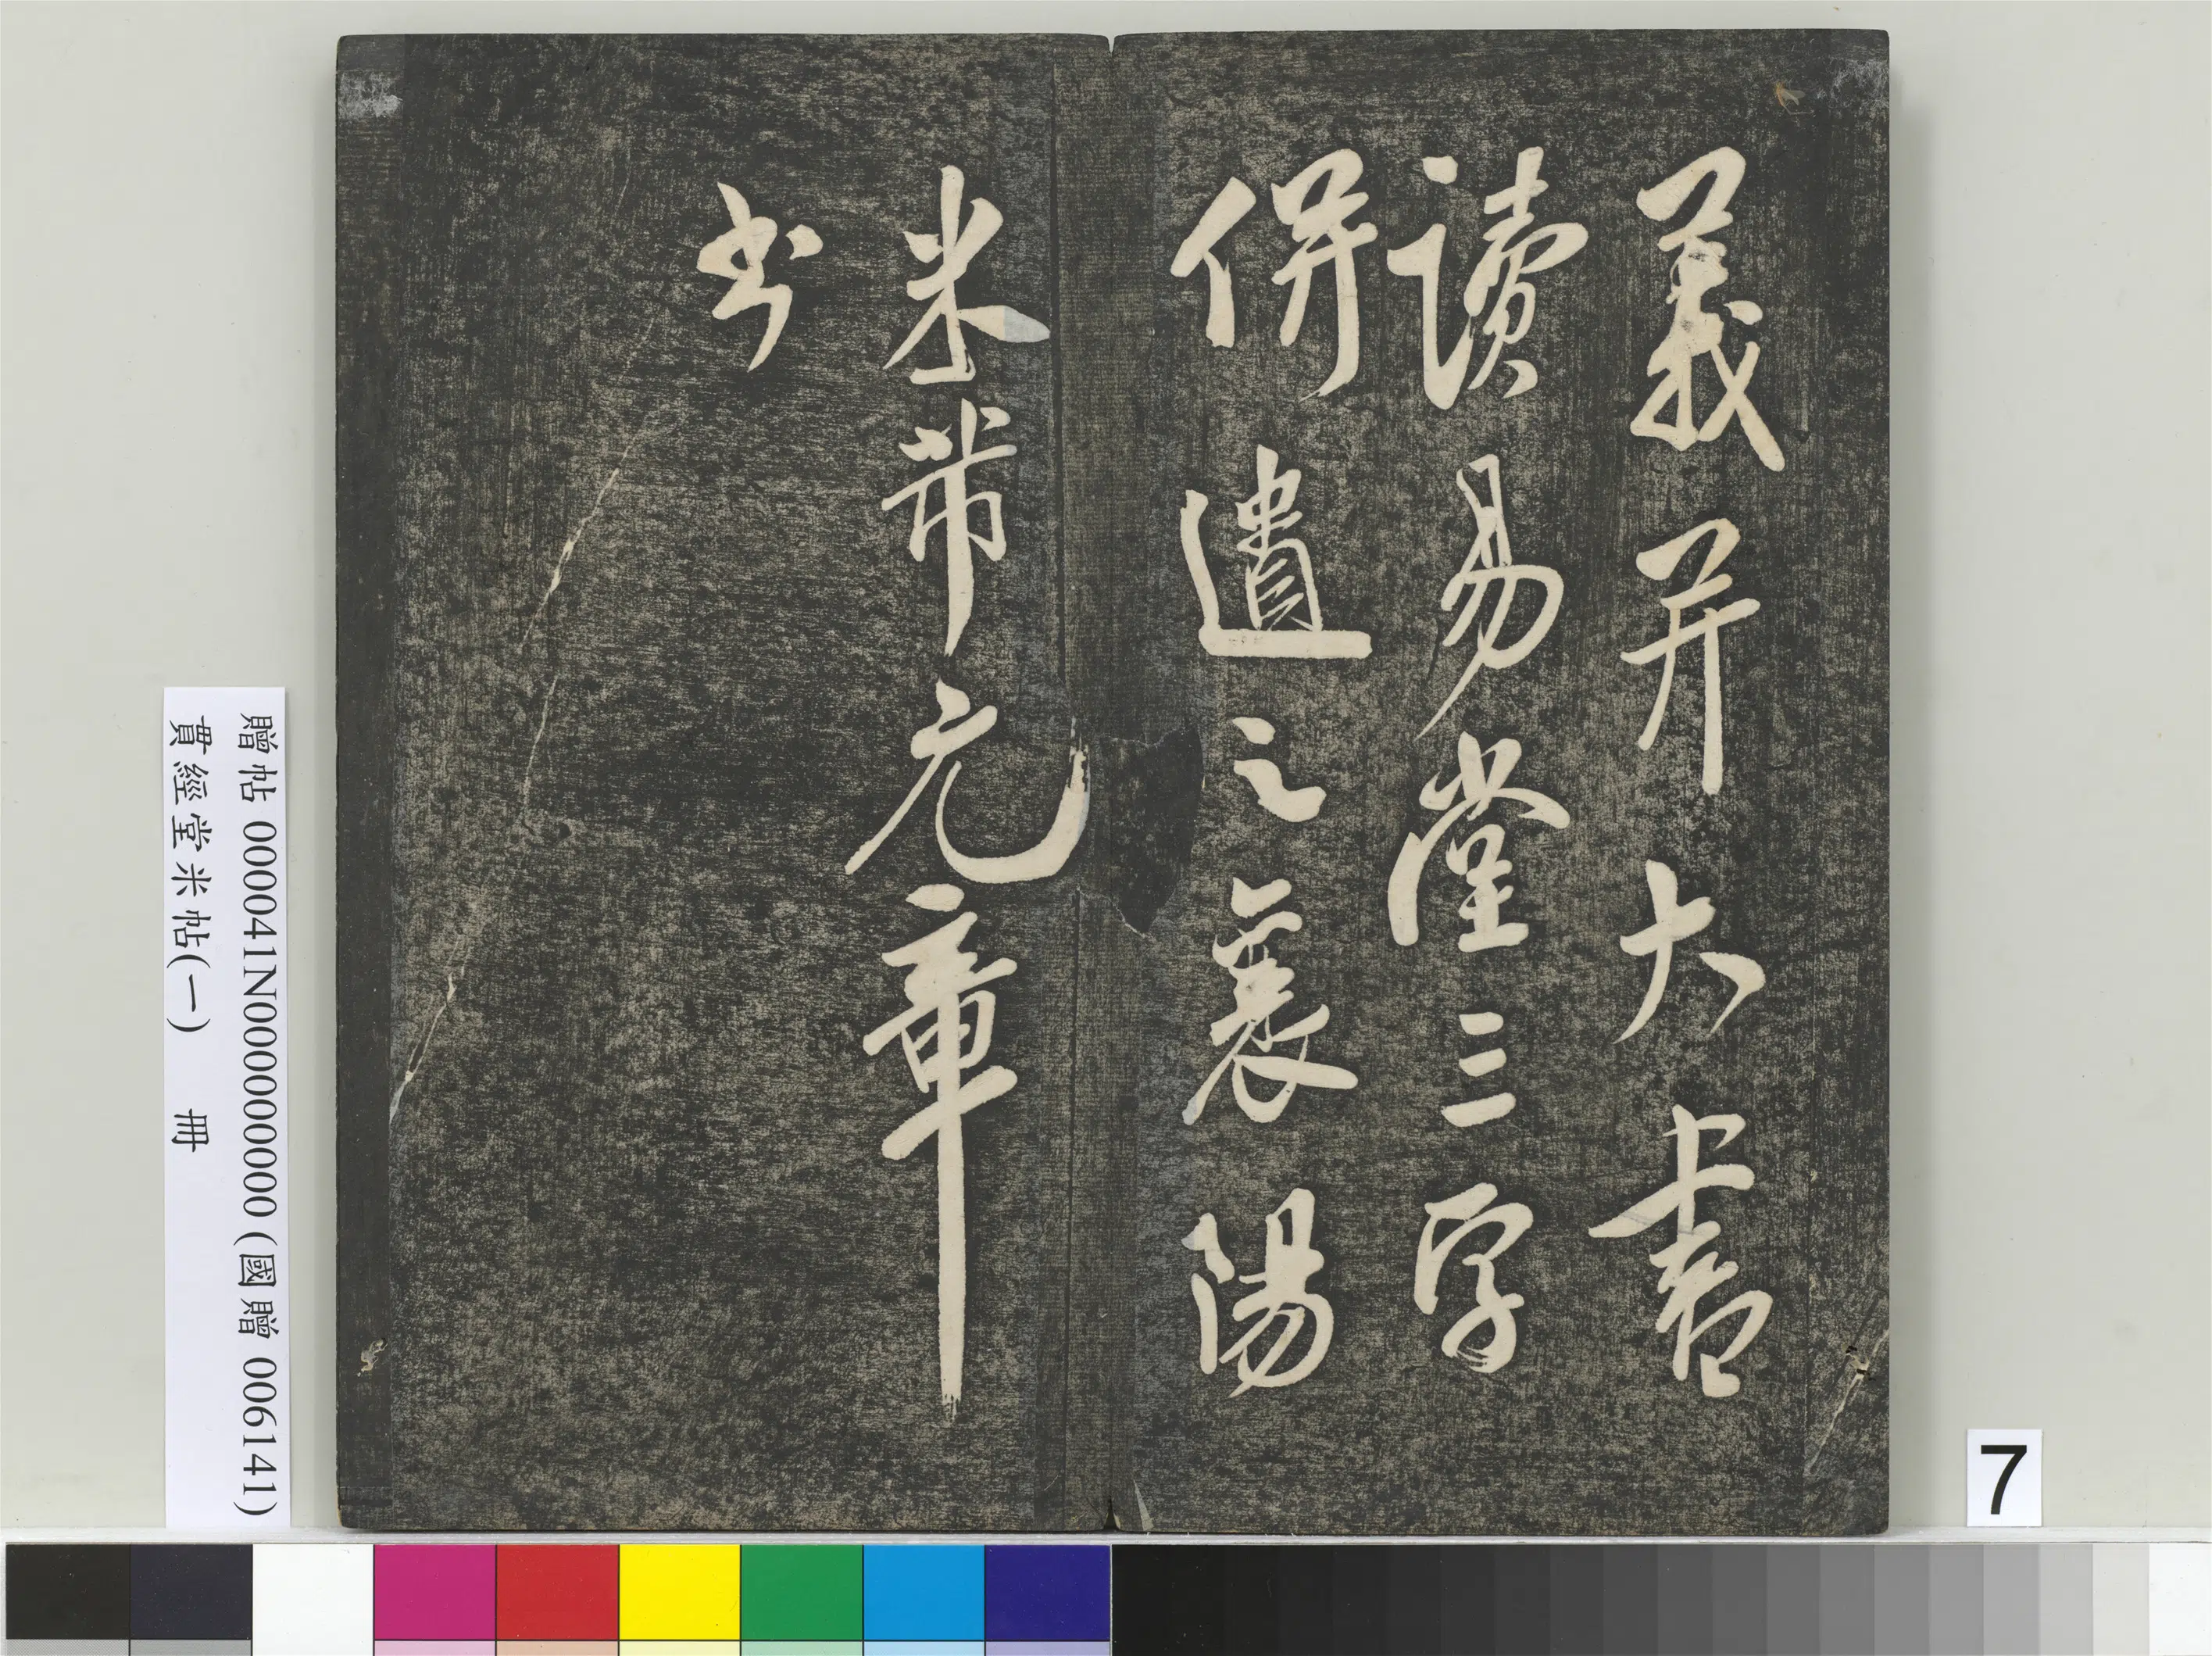 義并大書
讀易堂三字
併遺之襄陽
米芾元章
書
贈帖 000041N000000000 (國贈 006141)
貫經堂米帖(一) 冊
7